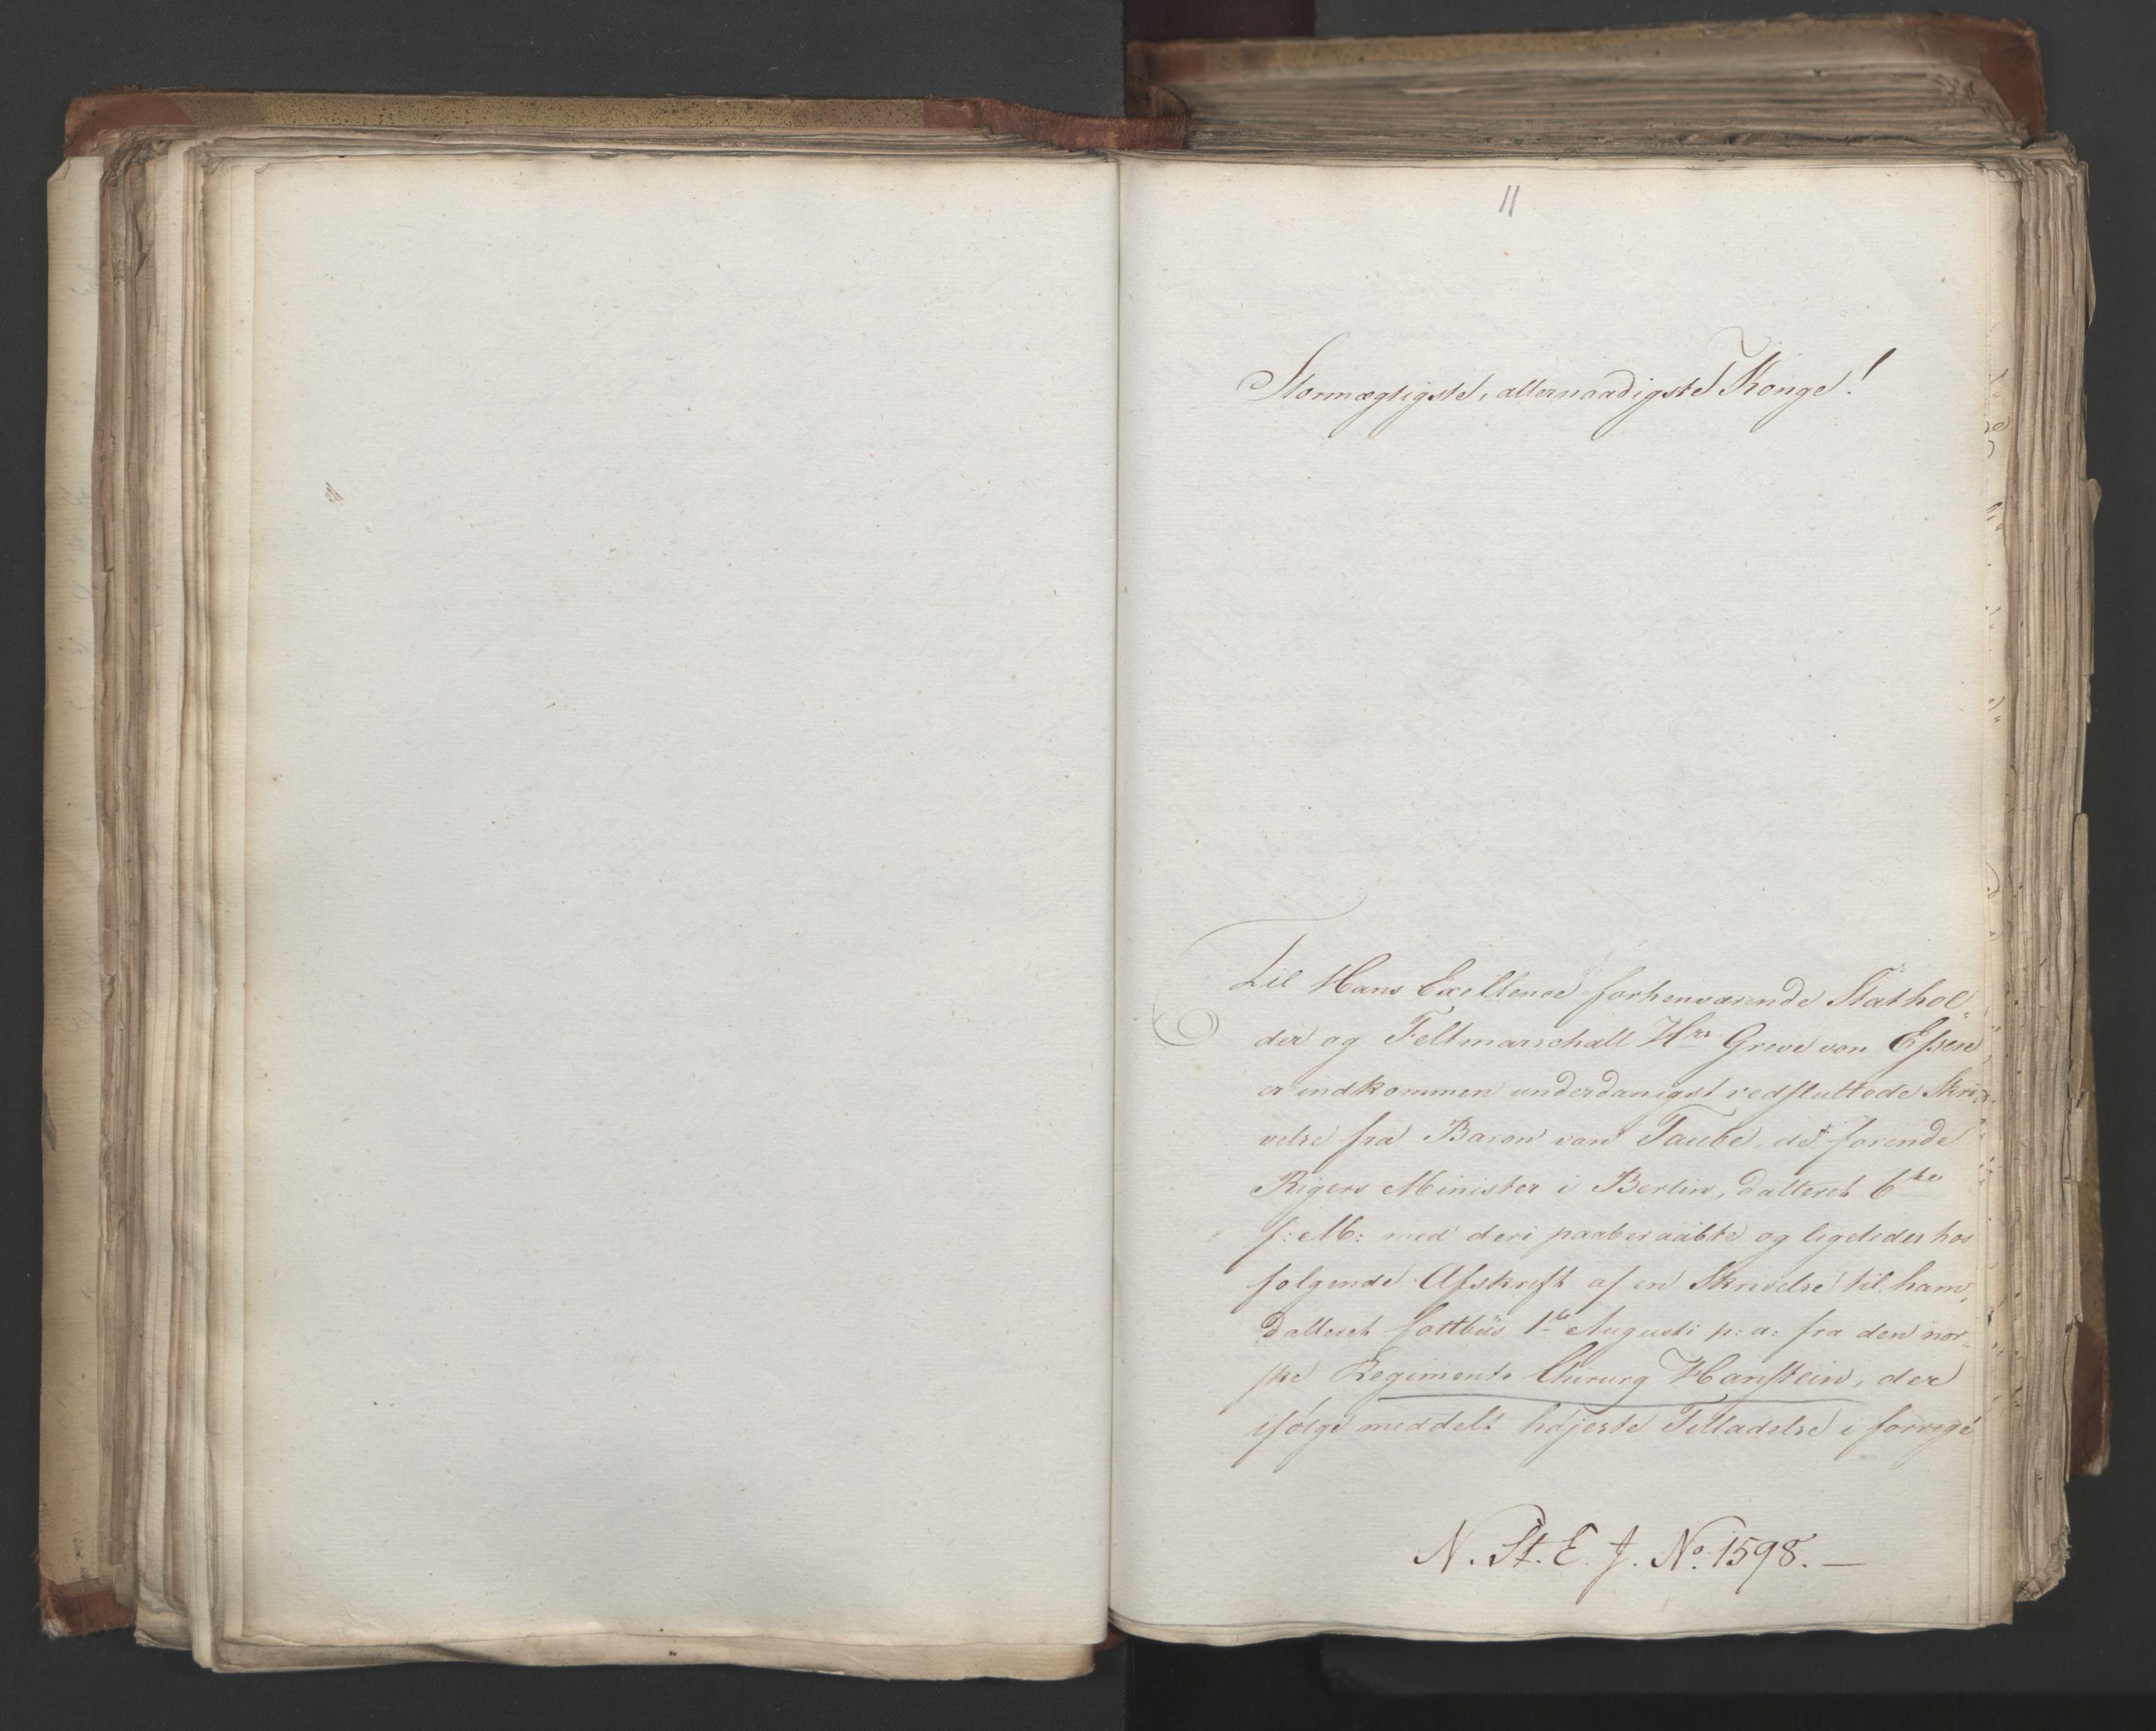 11
Stormægtigste, allernaadigste Konge!
Til Hans Exellence forhenværende Stathol„
der og Feltmarschall Hr Greve von Essen
er indkommen underdanigst vedsluttede Skri„
velse fra Baron von Taube, de forende
Rigers Minister i Berlin, datteret 6te
f: M: med deri paaberaabte og ligeledes hos
følgende Afskrift af en Skrivelse til ham,
datteret Cottbus 1te Augusti p: a: fra den nor„
ske Regiments Chirurg Hanstein, der
ifølge meddelt højeste Tilladelse i forrige
N. St. E. J. No. 1598. —